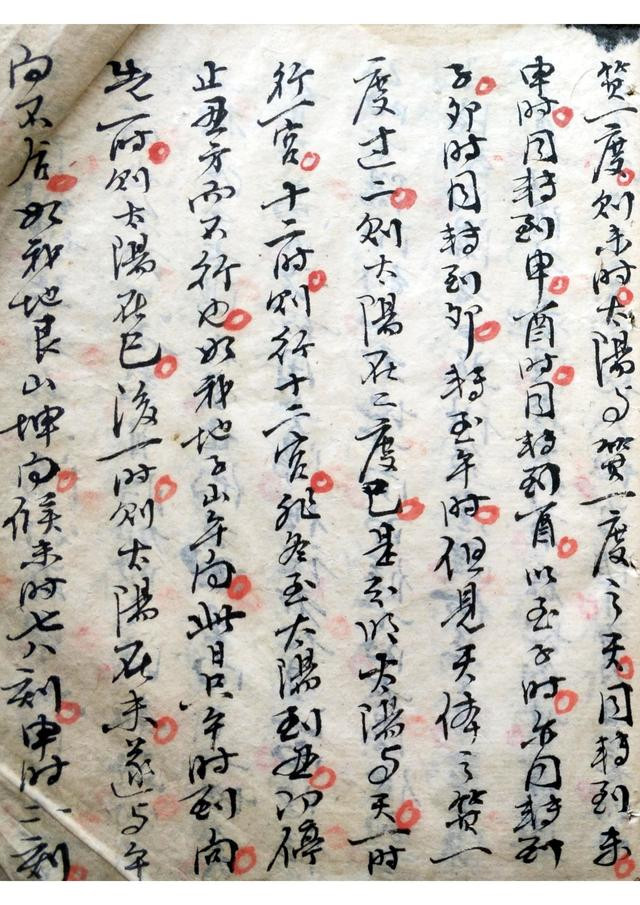 箕一度則未時太陽与箕一度之天同轉到未
申時同轉到申酉時同轉到酉以至子時亦同轉到
子卯時同轉到卯轉至午時但見天体之箕一
度过二則太陽在二度已是分明太陽与天一时
行一宮十二时則行十二宮非冬至太陽到丑即停
止丑方而不行也如我地子山午向此日只午时到向
先一时則太陽在巳後一时則太陽在未遂与午
向不居如我地艮山坤向候未时七八刻申时一二刻